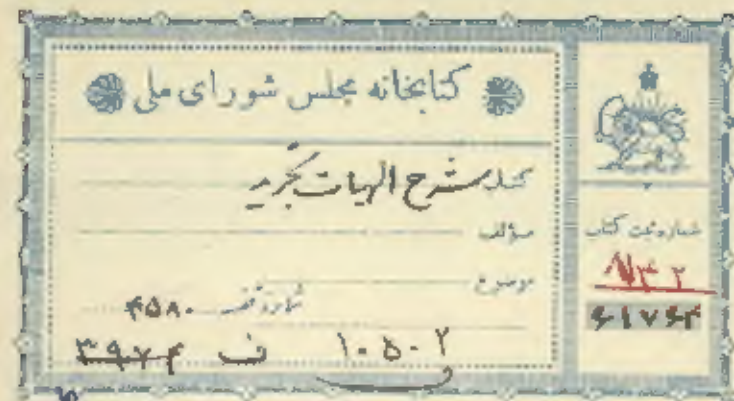 کتابخانه مجلس شورای ملی
کتاب شرح الهیات تجرید
مؤلف
موضوع
شماره قفسه ۴۵۸۰
۳۹۷۴ ف ۱۰۵۰۲
شماره ثبت کتاب
۶۱۷۶۴